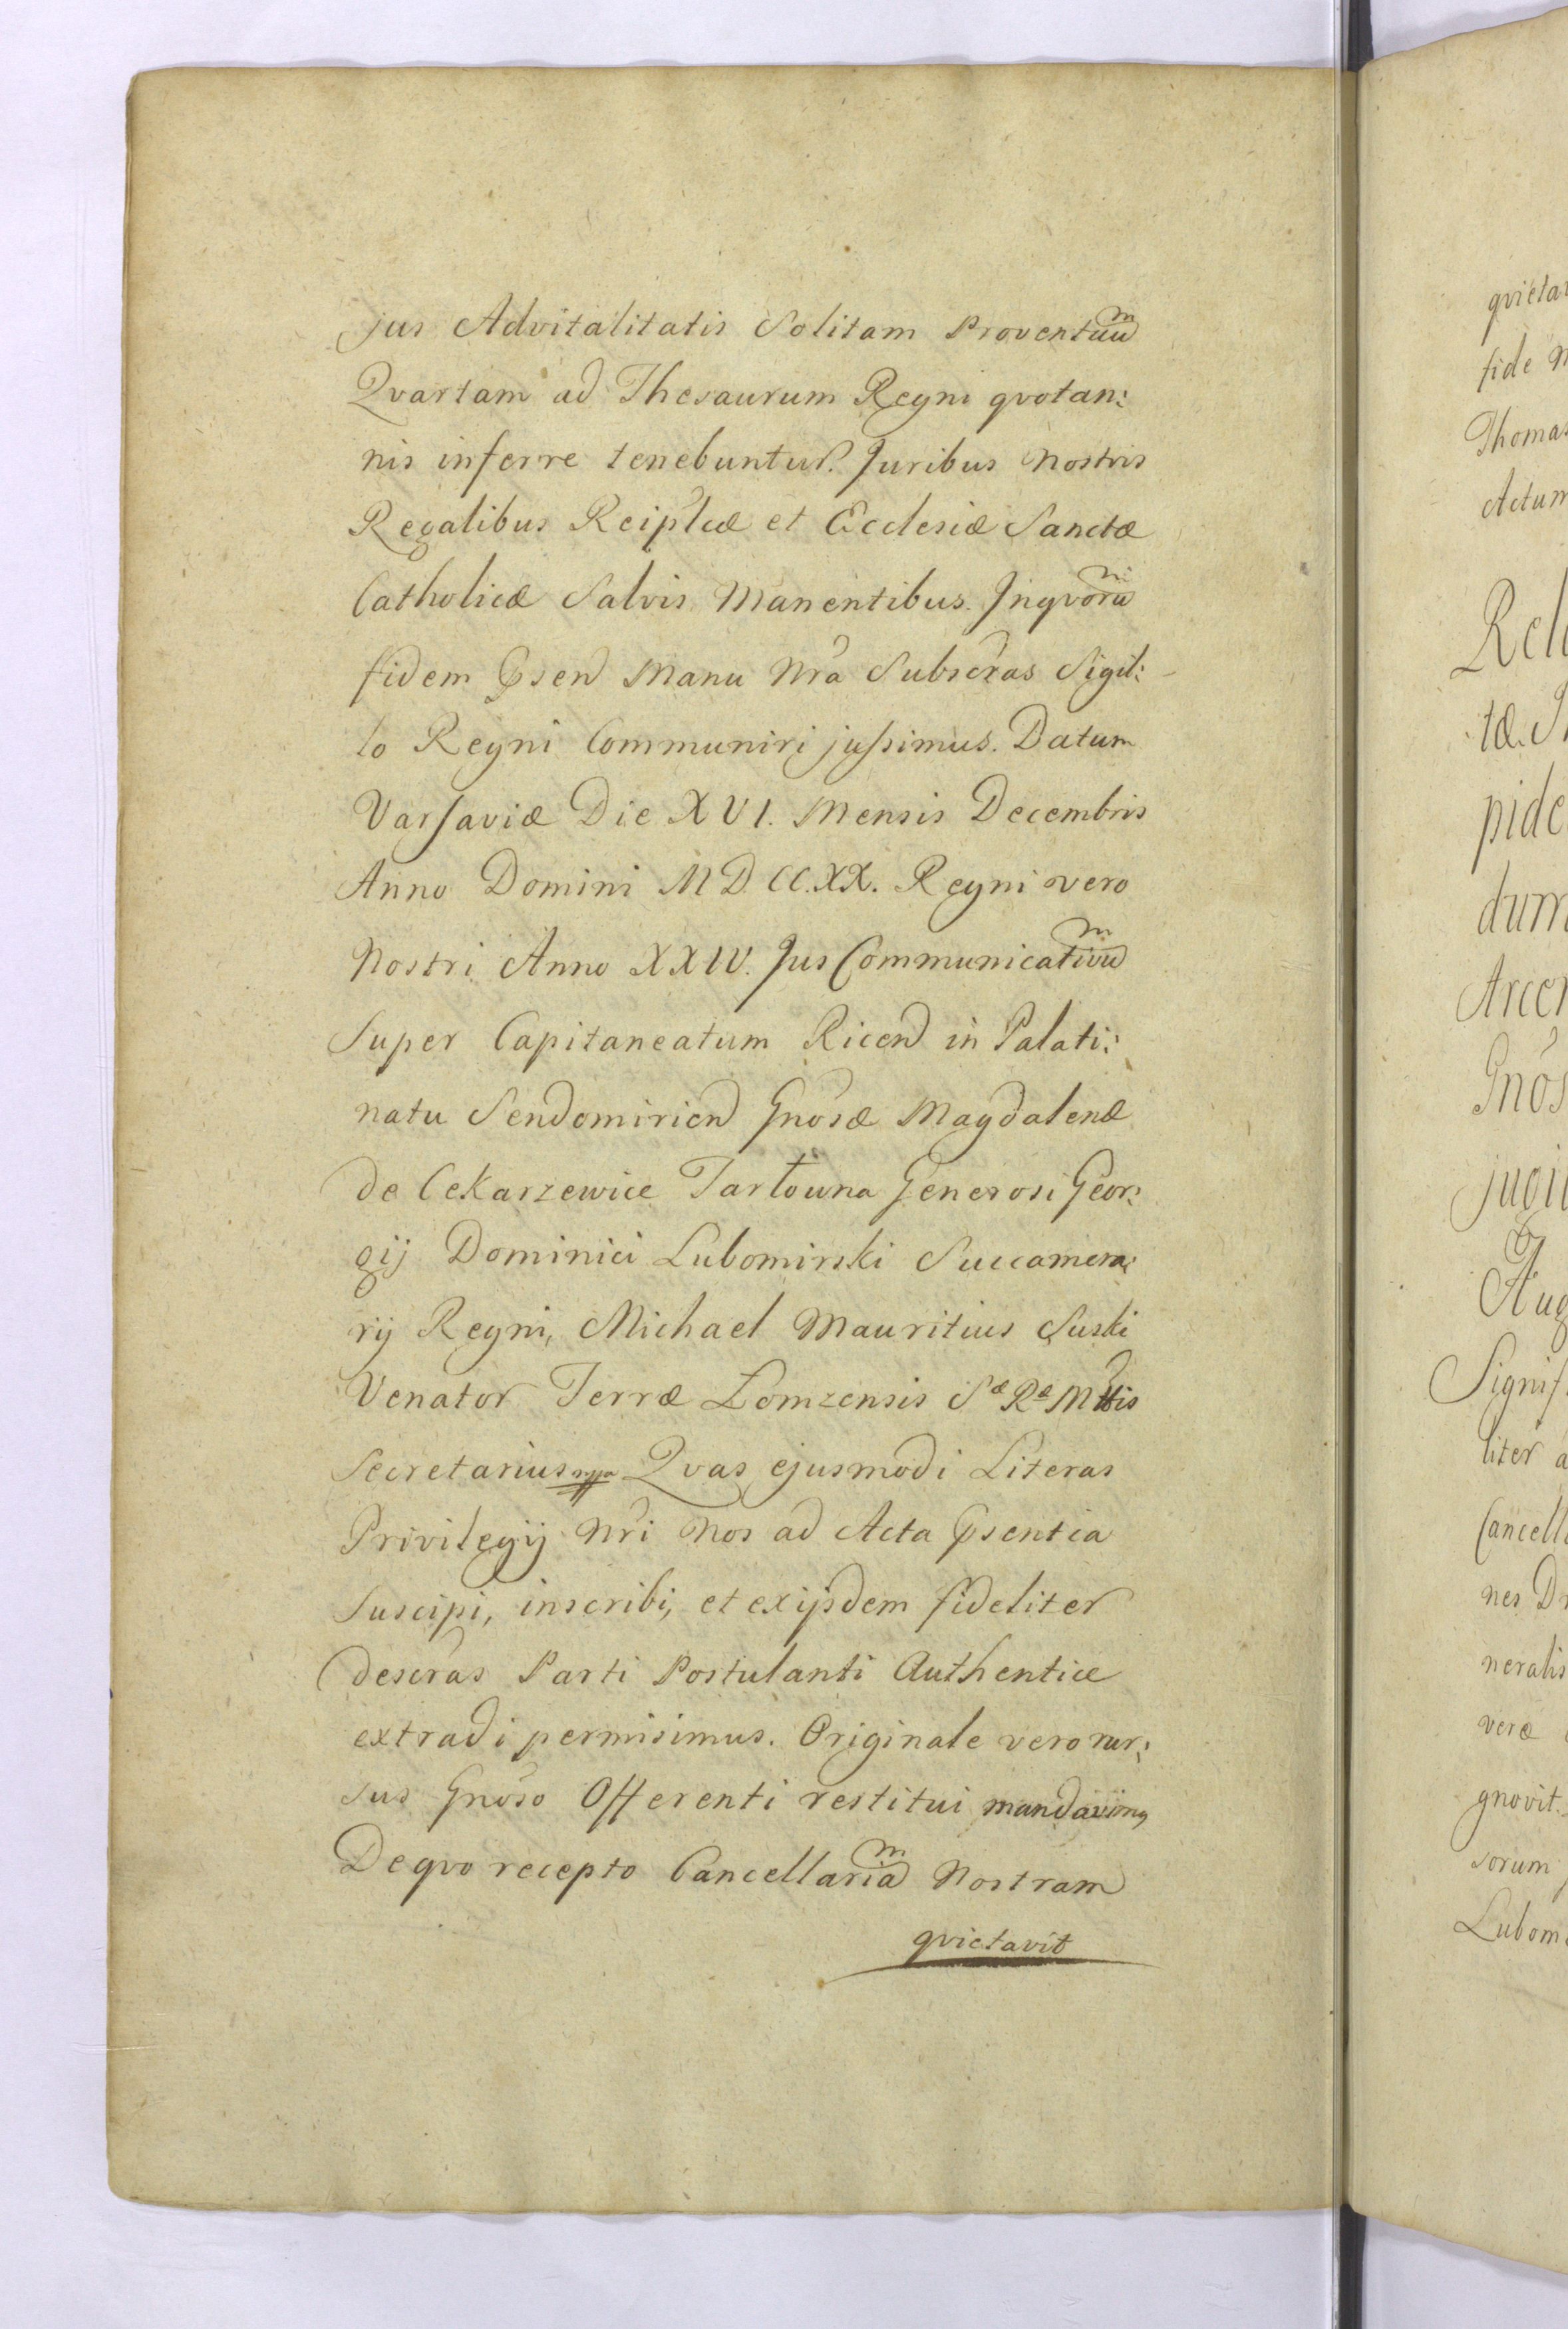 jus Advitalitatis Solitam Proventuu͠m
Qvartam ad Thesaurum Regni qvotan:
nis inferre tenebuntur. Juribus Nostris
Regalibus Reiplcæ et Ecclesiæ Sanctæ
Catholicæ Salvis Manentibus. Inqvoru͠m
fidem Psen Manu Nra Subscras Sigil:
lo Regni Communiri jussimus. Datum
Varsaviæ Die XVI. Mensis Decembris
Anno Domini M D. CC. XX. Regni vero
Nostri Anno XXIV. Jus Communicativu͠m
Super Capitaneatum Ricen in Palati:
natu Sendomirien Gnosæ Magdalenæ
de Cekarzewice Tarłowna Generosi Geor:
gij Dominici Lubomirski Succamera:
rij Regni, Michael Mauritius Suski
Venator Terræ Lomzensis Sæ Ræ Mttis
Secretarius mpp Qvas ejusmodi Literas
Privilegij Nri Nos ad Acta Psentia
Suscipi, inscribi, et ex ijsdem fideliter
descras Parti Postulanti Authentice
extradi permisimus. Originale vero rur:
sus Gnoso Offerenti restitui mandavimꝰ
De qvo recepto Cancellaria͠m Nostram
qvietavit
qvieta
fide
Thomas
Actum
tæ.
pide
dum
Gnos
Aug
Signif
liter a
Cancell
nes
neralis
veræ
gnovit.
sorum
Lubom